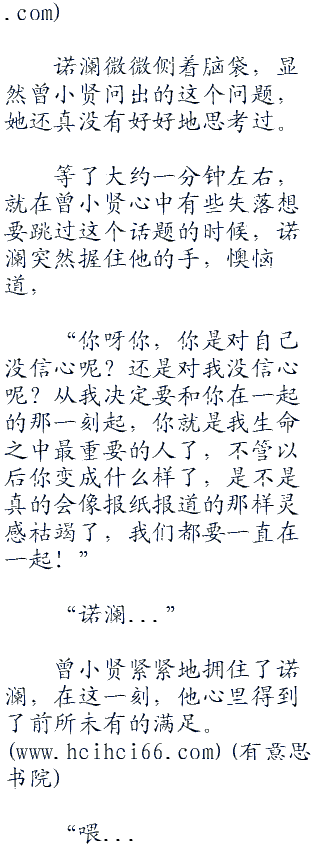 .com)
诺澜微微侧着脑袋，显
然曾小贤问出的这个问题，
她还真没有好好地思考过。
等了大约一分钟左右，
就在曾小贤心中有些失落想
要跳过这个话题的时候，诺
澜突然握住他的手，懊恼
道，
“你呀你，你是对自己
没信心呢？还是对我没信心
呢？从我决定要和你在一起
的那一刻起，你就是我生命
之中最重要的人了，不管以
后你变成什么样了，是不是
真的会像报纸报道的那样灵
感枯竭了，我们都要一直在
一起！”
“诺澜...”
曾小贤紧紧地拥住了诺
澜，在这一刻，他心里得到
了前所未有的满足。
(www.hcihci66.com)(有意思
书院)
“喂...